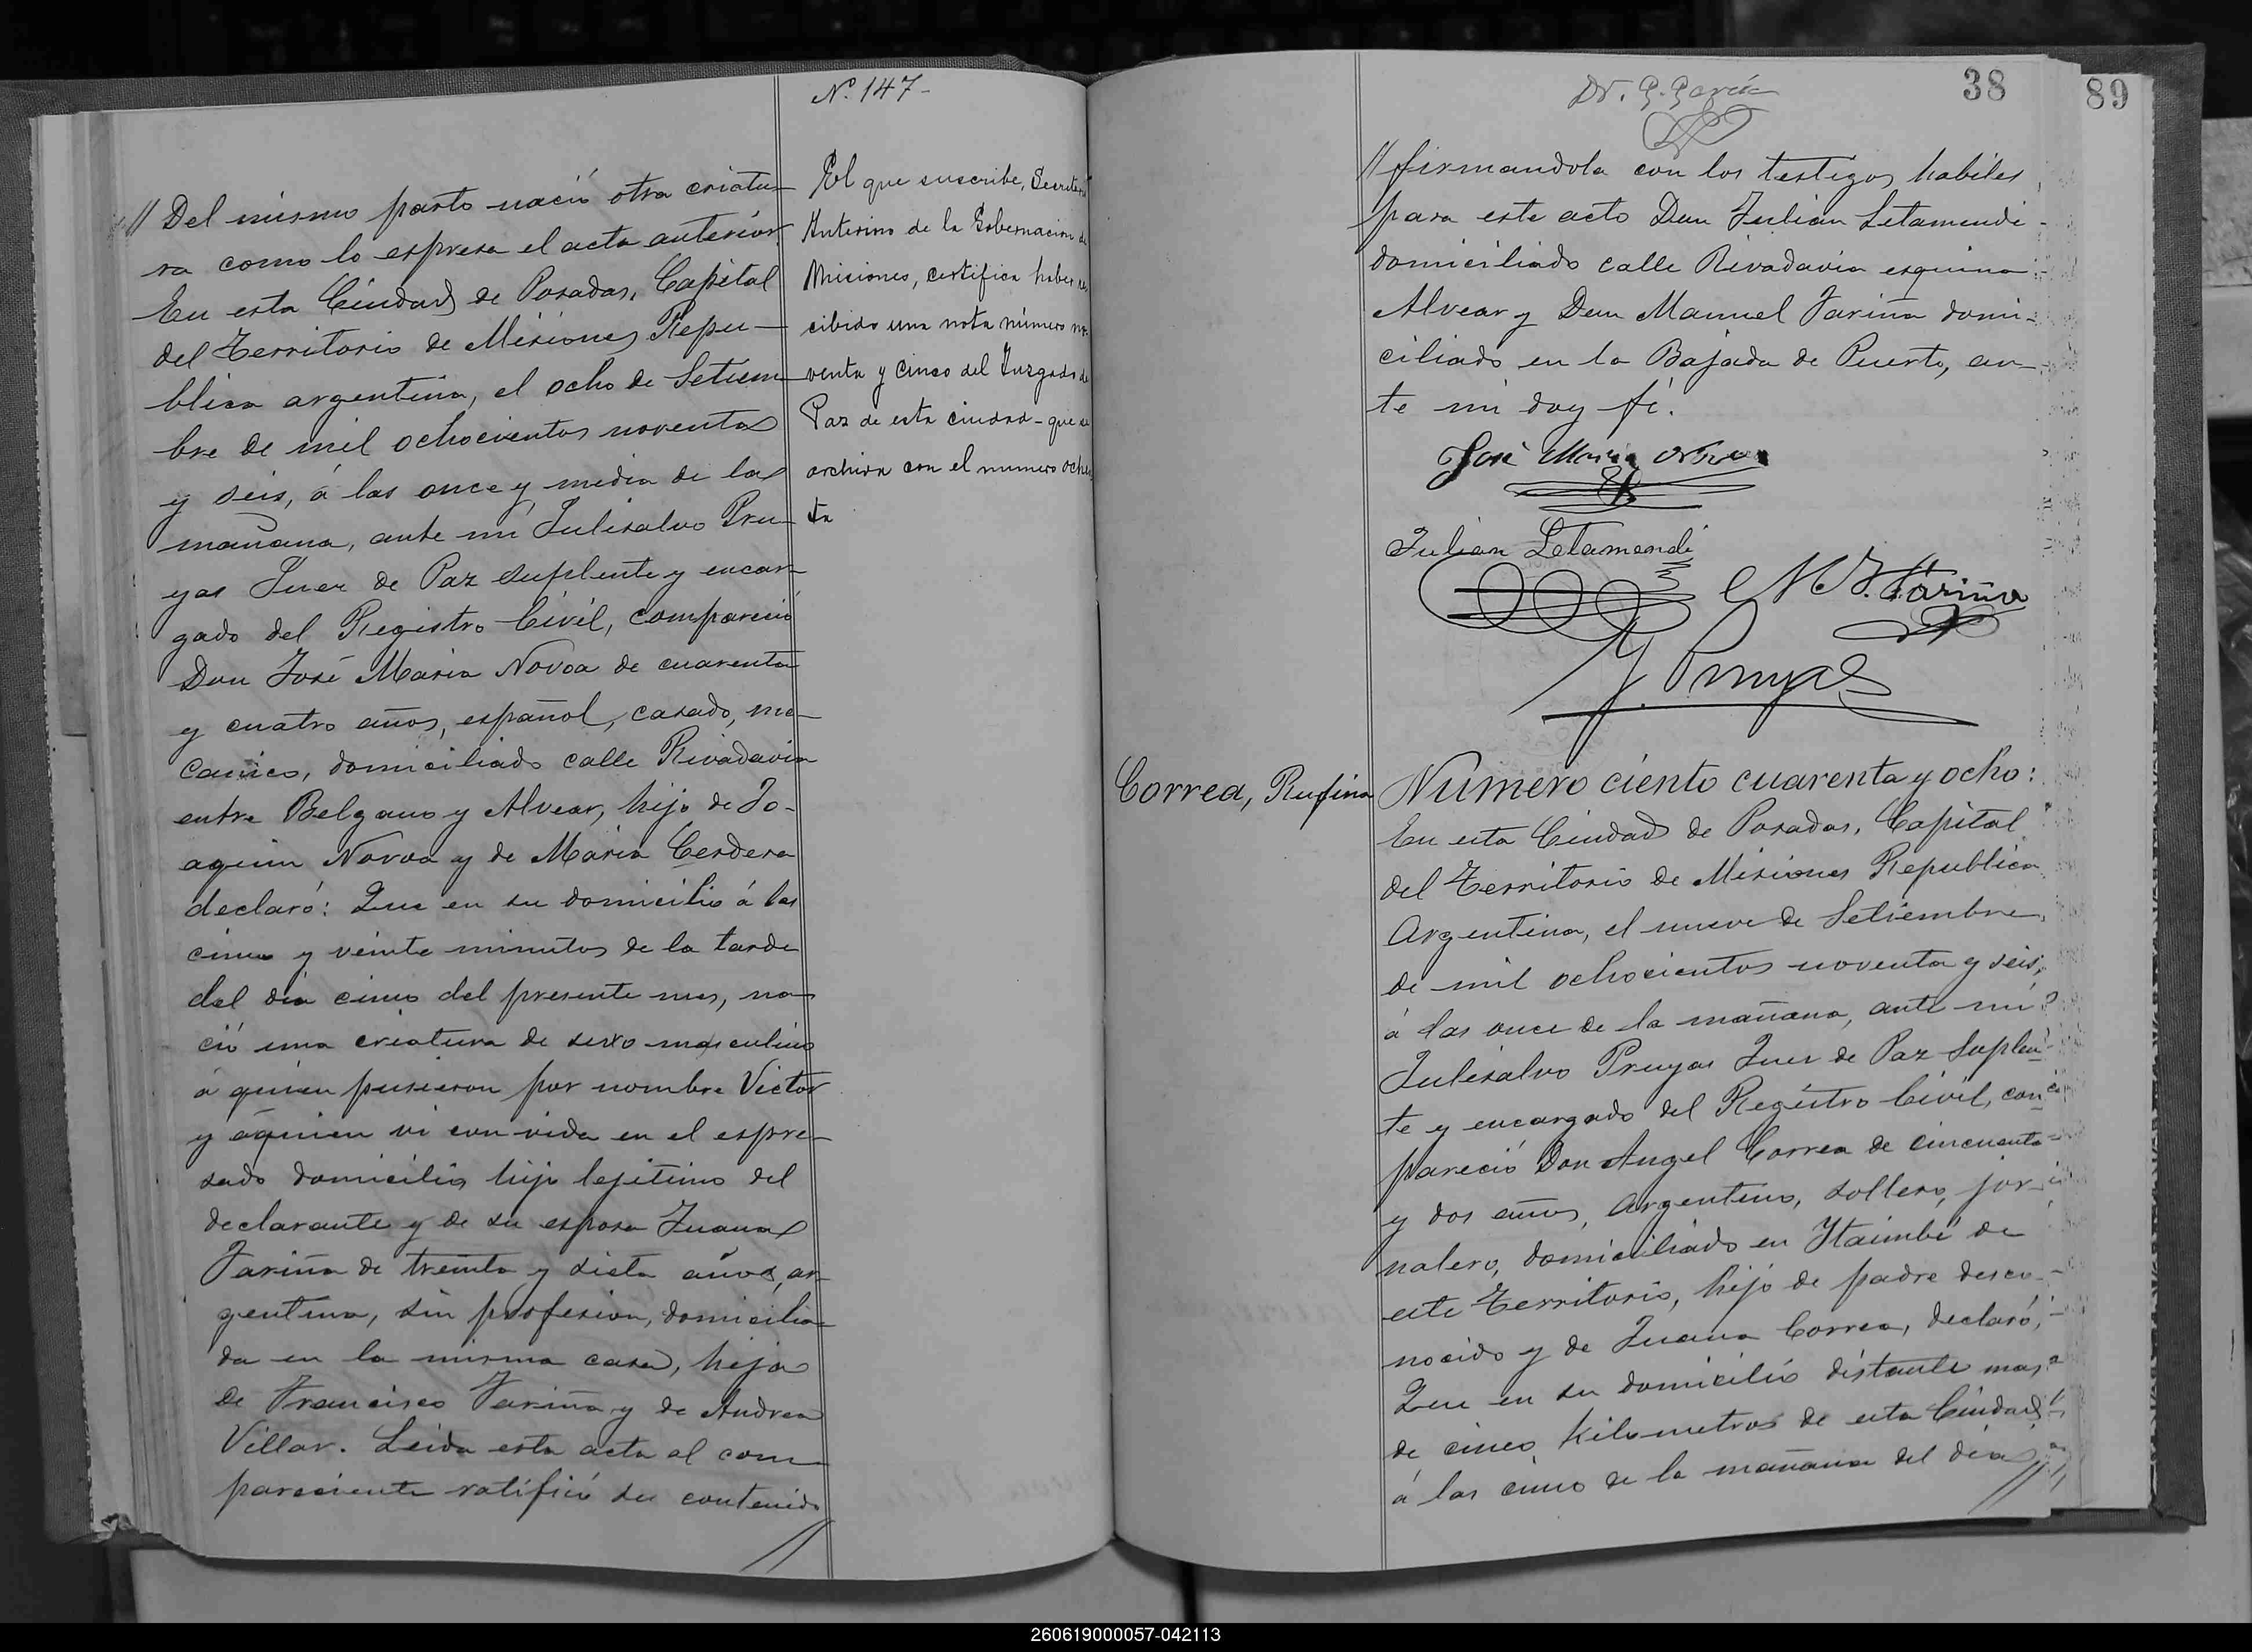 N. 147-
// Del mismo parto nació otra criatu-
ra como lo espresa el acta anterior
En esta Ciudad de Posadas, Capital
del Territorio de Misiones Repu-
blica argentina, el ocho de Setiem-
bre de mil ochocientos noventa
y seis, á las once y media de la
mañana, ante mi Julisalvo Pru-
yas Juez de Paz suplente y encar-
gado del Registro Civil, compareció
Don José Maria Novoa de cuarenta
y cuatro años, español, casado, me-
canico, domiciliado calle Rivadavia
entre Belgano y Alvear, hijo de Jo-
aquin Novoa y de Maria Cerdera
declaró: Que en su domicilio á las
cinco y veinte minutos de la tarde
del dia cinco del presente mes, na-
ció una criatura de sexo masculino
á quien pusieron por nombre Victor
y áquien vi con vida en el espre-
sado domicilio hijo lejitimo del
declarante y de su esposa Juana
Fariña de treinta y siete años, ar-
gentina, sin profesion, domicilia-
da en la misma casa, hija
de Francisco Fariña y de Andrea
Villar. Leida esta acta al com-
pareciente ratificó su contenido
//
El que suscribe, Secretario
Interino de la Gobernacion de
Misiones, certifica haber re-
cibido una nota número no-
venta y cinco del Juzgado de
Paz de esta ciudad - que se
archiva con el numero ochen
ta
Dr. G. García
38
89
// firmandola con los testigos habiles
para este acto Don Julian Letamendi
domiciliado calle Rivadavia esquina
Alvear y Don Manuel Fariña domi-
ciliado en la Bajada de Puerto, an-
te mi doy fé.
José Maria Novoa
Julian Letamendi
M. F. Fariña
J. Pruyas
Correa, Rufina
Número ciento cuarenta y ocho:
En esta Ciudad de Posadas, Capital
del Territorio de Misiones Republica
Argentina, el nueve de Setiembre
de mil ochocientos noventa y seis,
á las once de la mañana, ante mi
Julisalvo Pruyas Juez de Paz Suplen-
te y encargado del Registro Civil, com-
pareció Don Angel Correa de cincuenta
y dos años, Argentino, soltero, jor-
nalero, domiciliado en Itaimbé de
este Territorio, hijo de padre desco-
nocido y de Juana Correa, declaró,
Que en su domicilio distante mas
de cinco kilometros de esta Ciudad
á las cinco de la mañana del dia
//
260619000057-042113